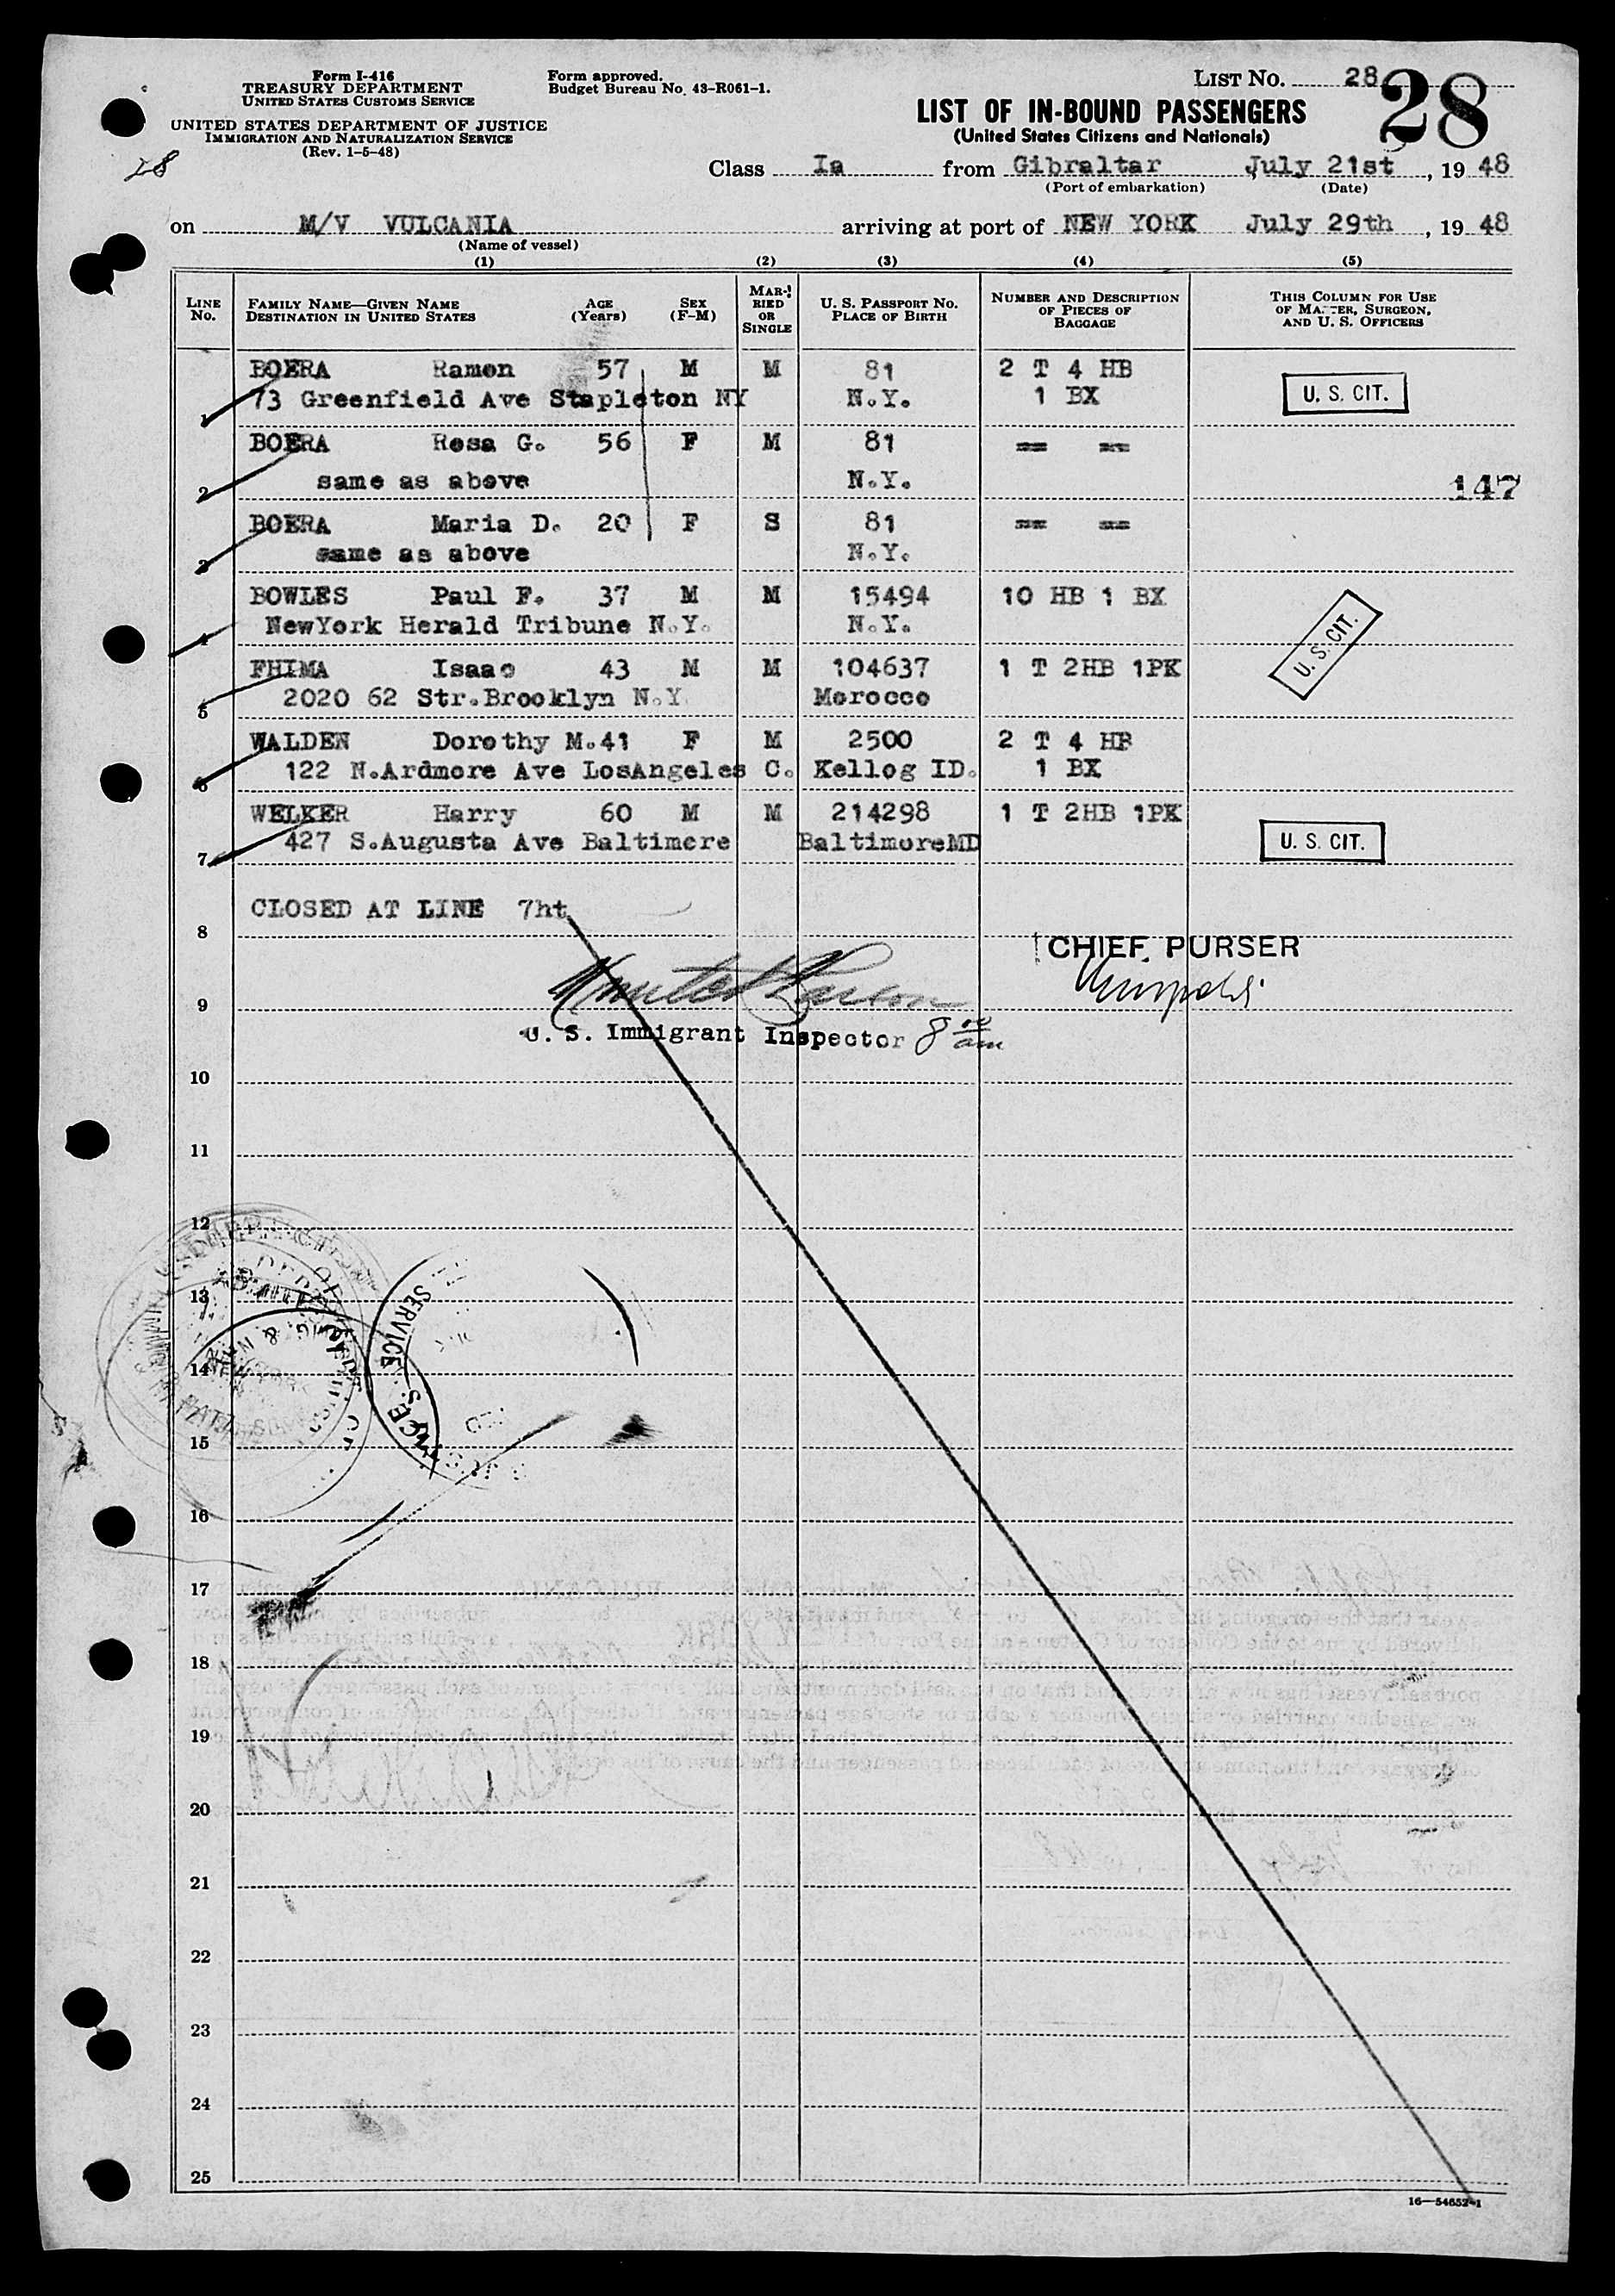 Form I-416
TREASURY DEPARTMENT
UNITED STATES CUSTOMS SERVICE
UNITED STATES DEPARTMENT OF JUSTICE
IMMIGRATION AND NATURALIZATION SERVICE
(Rev. 1-5-48)
Form approved.
Budget Bureau No. 43-R061-1.
LIST NO. 28
28
LIST OF IN-BOUND PASSENGERS
(United States Citizens and Nationals)
28
Class Ia from Gibraltar July 21st, 19 48
(Port of embarkation) (Date)
on M/V VULCANIA arriving at port of NEW YORK July 29th, 19 48
(Name of vessel)
(1) (2) (3) (4) (5)
LINE NO. FAMILY NAME—GIVEN NAME DESTINATION IN UNITED STATES AGE (Years) SEX (F-M) MARRIED OR SINGLE U. S. PASSPORT NO. PLACE OF BIRTH NUMBER AND DESCRIPTION OF PIECES OF BAGGAGE THIS COLUMN FOR USE OF MASTER, SURGEON, AND U. S. OFFICERS
BOERA Ramon 57 M M 81 2 T 4 HB
1 73 Greenfield Ave Stapleton NY N.Y. 1 BX U. S. CIT.
BOERA Rosa G. 56 F M 81 == ==
2 same as above N.Y. 147
BOERA Maria D. 20 F S 81 == ==
3 same as above N.Y.
BOWLES Paul F. 37 M M 15494 10 HB 1 BX
4 NewYork Herald Tribune N.Y. N.Y. U. S. CIT.
FHIMA Isaac 43 M M 104637 1 T 2HB 1PK
5 2020 62 Str.Brooklyn N.Y. Morocco
WALDEN Dorothy M.41 F M 2500 2 T 4 HB
6 122 N.Ardmore Ave LosAngeles C. Kellog ID. 1 BX
WELKER Harry 60 M M 214298 1 T 2HB 1PK
7 427 S.Augusta Ave Baltimore BaltimoreMD U. S. CIT.
CLOSED AT LINE 7ht
8
CHIEF PURSER
9
U. S. Immigrant Inspector 8 00 am
10
11
12
13
14
15
16
17
18
19
20
21
22
23
24
25
16—54652-1